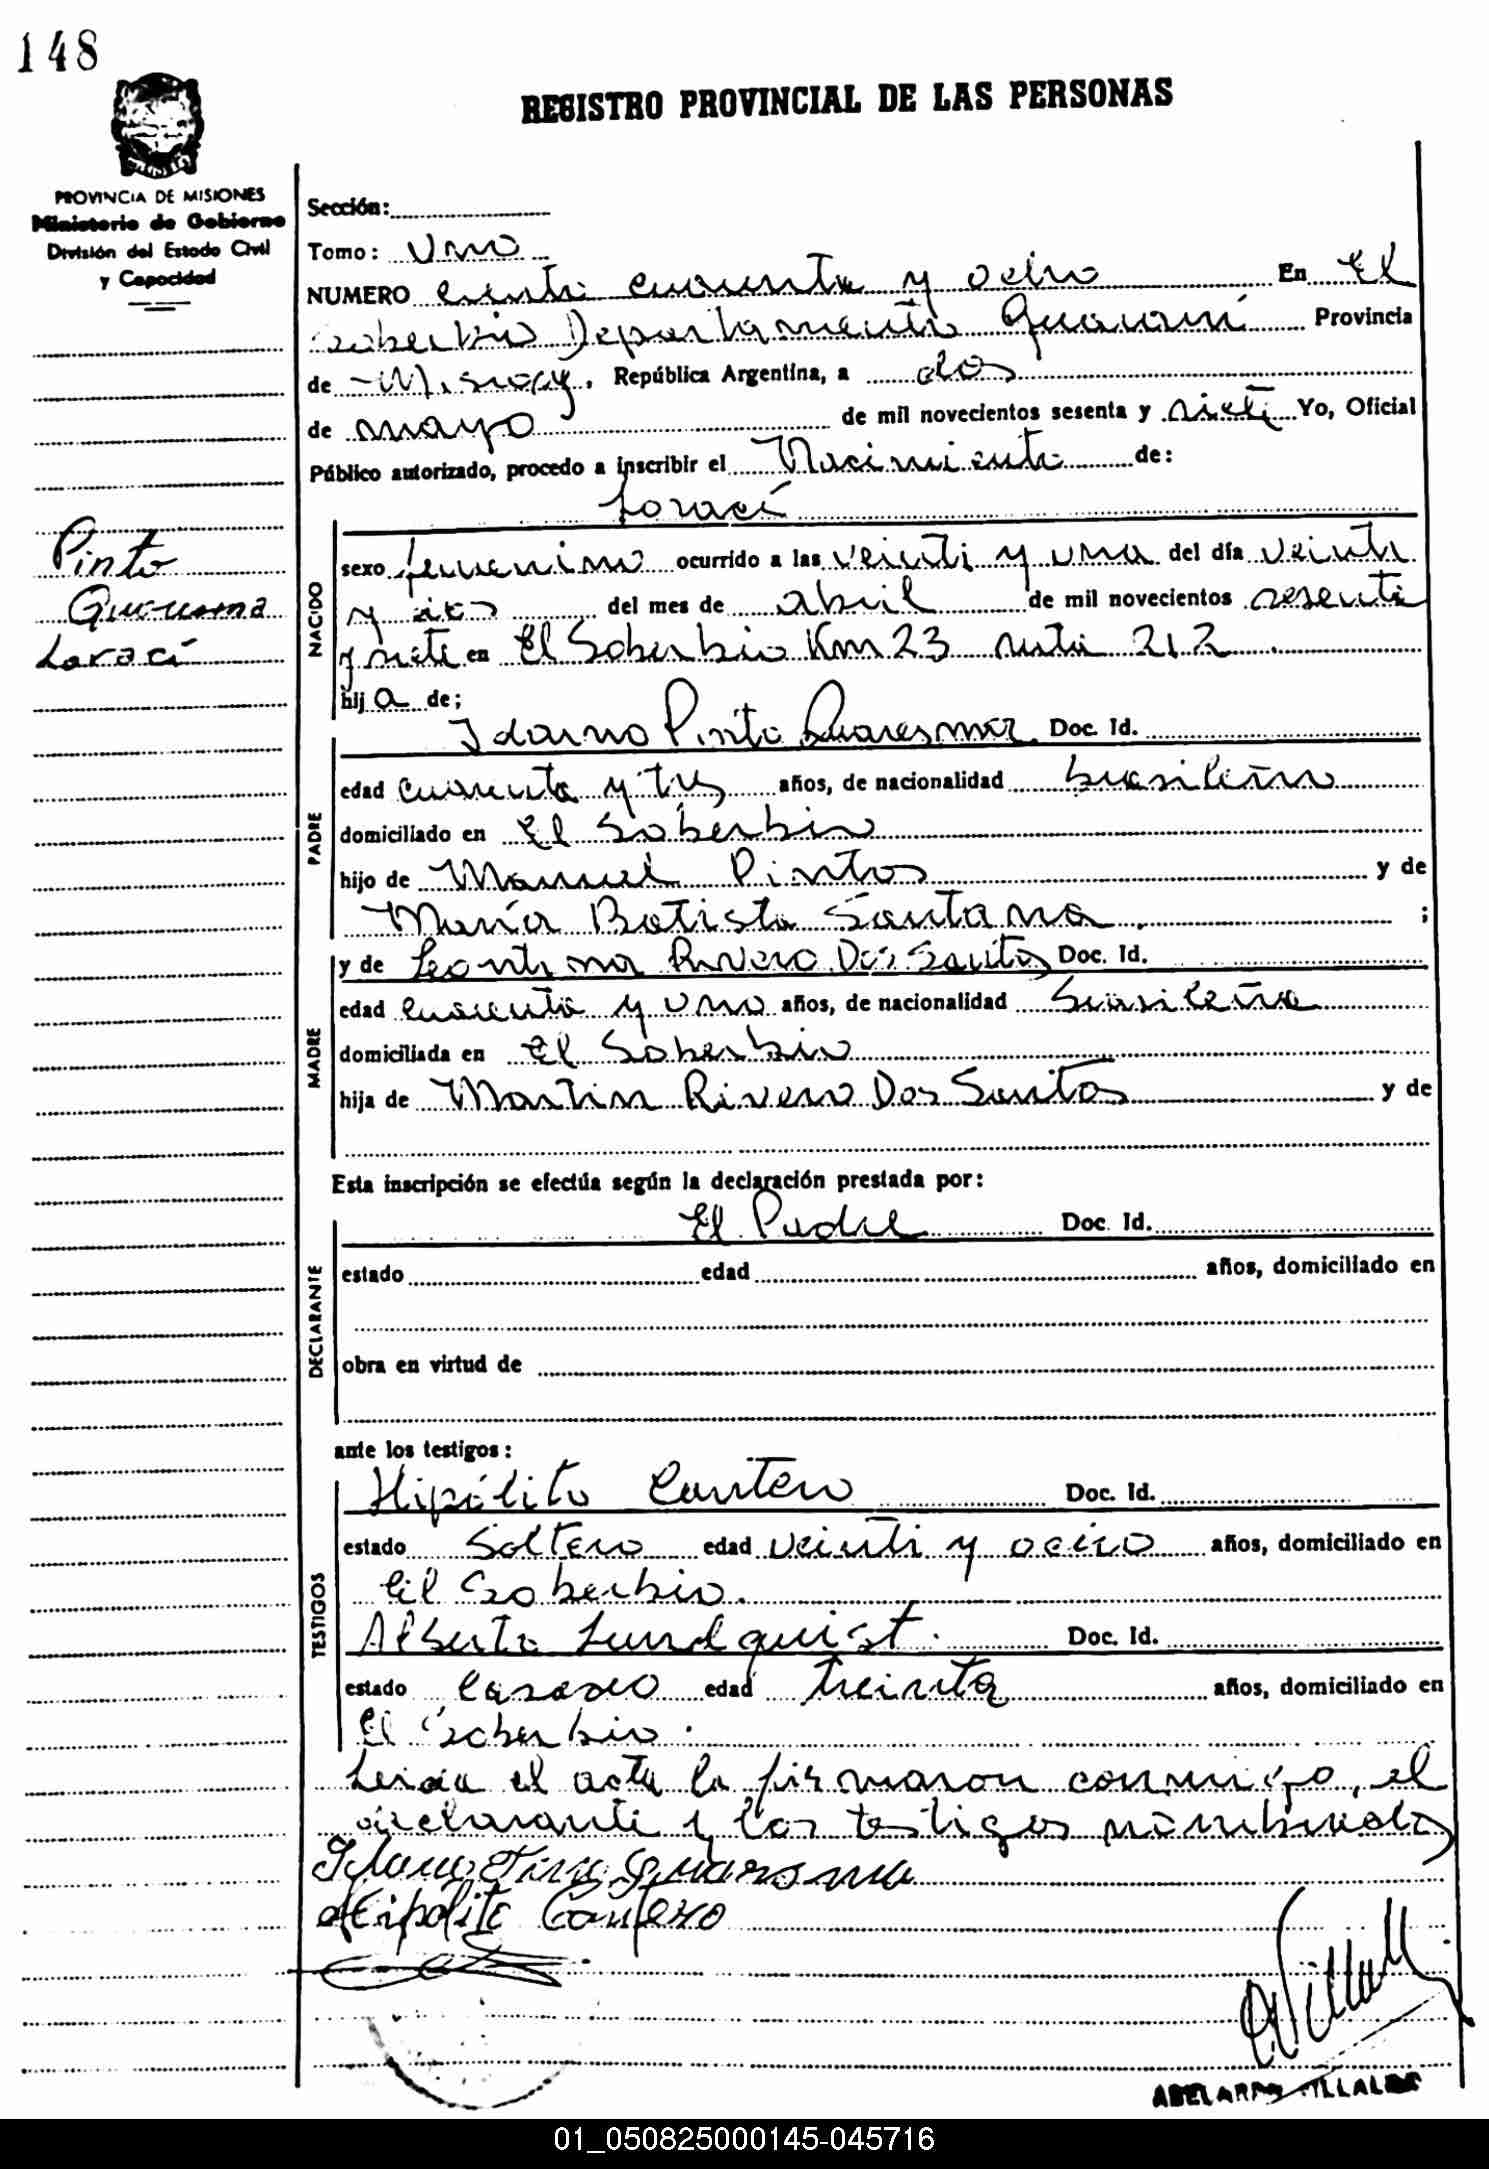 148
REGISTRO PROVINCIAL DE LAS PERSONAS
PROVINCIA DE MISIONES
Ministerio de Gobierno
División del Estado Civil
y Capacidad
Pinto
Laraci
Sección:
Tomo: Uno
NUMERO ciento cuarenta y ocho En El
Soberbio Departamento Guaraní Provincia
de Misiones, República Argentina, a dos
de mayo de mil novecientos sesenta y siete Yo, Oficial
Público autorizado, procedo a inscribir el Nacimiento de:
Loraci
NACIDO
sexo femenino ocurrido a las veinti y una del día veinti
y dos del mes de abril de mil novecientos sesenta
y siete en El Soberbio Km 23 ruta 212
hija de;
PADRE
Idarno Pinto Quaresma Doc. Id.
edad cuarenta y tres años, de nacionalidad brasileño
domiciliado en El Soberbio
hijo de Manuel Pintos y de
María Batista Santana ;
MADRE
y de Leontina Rivero Dos Santos Doc. Id.
edad cuarenta y uno años, de nacionalidad brasileña
domiciliada en El Soberbio
hija de Martin Rivero Dos Santos y de
Esta inscripción se efectúa según la declaración prestada por:
DECLARANTE
El Padre Doc. Id.
estado edad años, domiciliado en
obra en virtud de
ante los testigos:
TESTIGOS
Hipólito Cantero Doc. Id.
estado Soltero edad veinti y ocho años, domiciliado en
El Soberbio.
Alberto Lundquist. Doc. Id.
estado Casado edad treinta años, domiciliado en
El Soberbio.
Leida el acta la firmaron conmigo, el
declarante y los testigos nombrados
Quaresma
Hipólito Cantero
ABELARDO VILLALBA
01_050825000145-045716